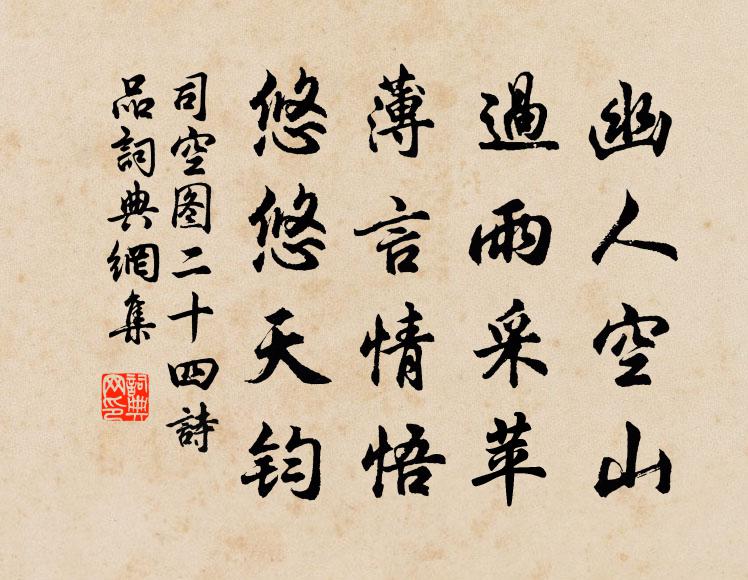 幽人空山
過雨采苹
薄言情悟
悠悠天钧
司空图二十四詩
品詞典網集
詞典网印